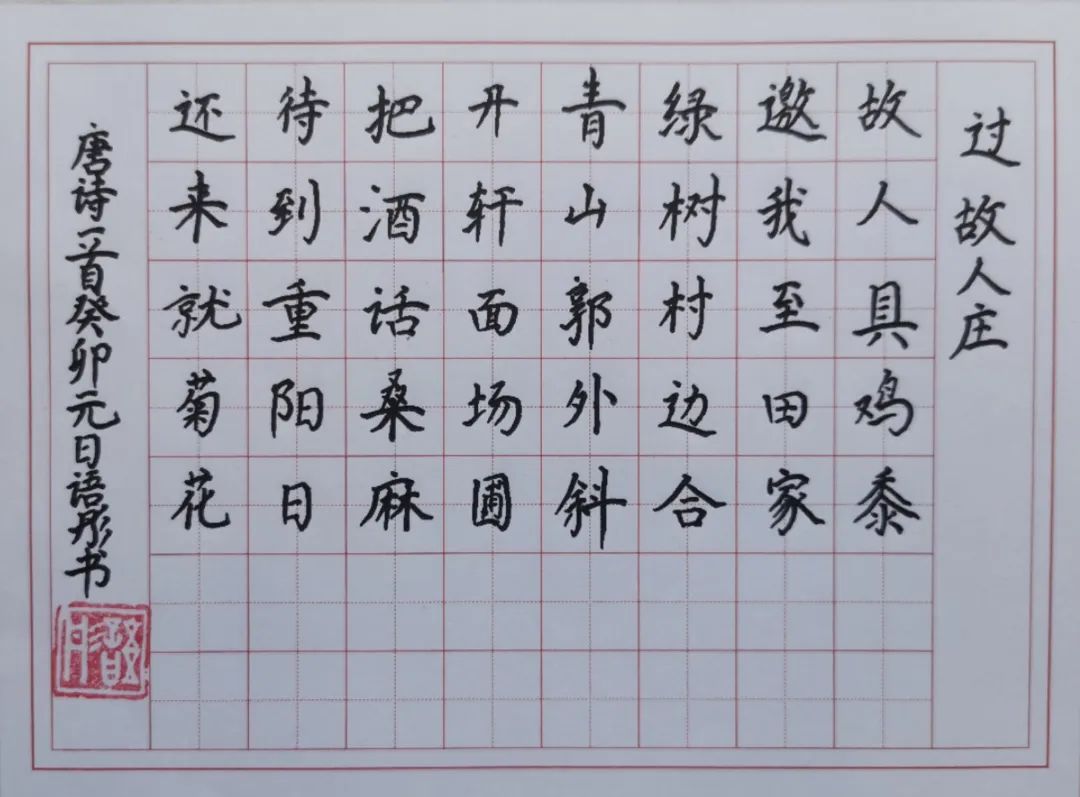 过故人庄
故人具鸡黍
邀我至田家
绿树村边合
青山郭外斜
开轩面场圃
把酒话桑麻
待到重阳日
还来就菊花
唐诗一首癸卯元日语彤书